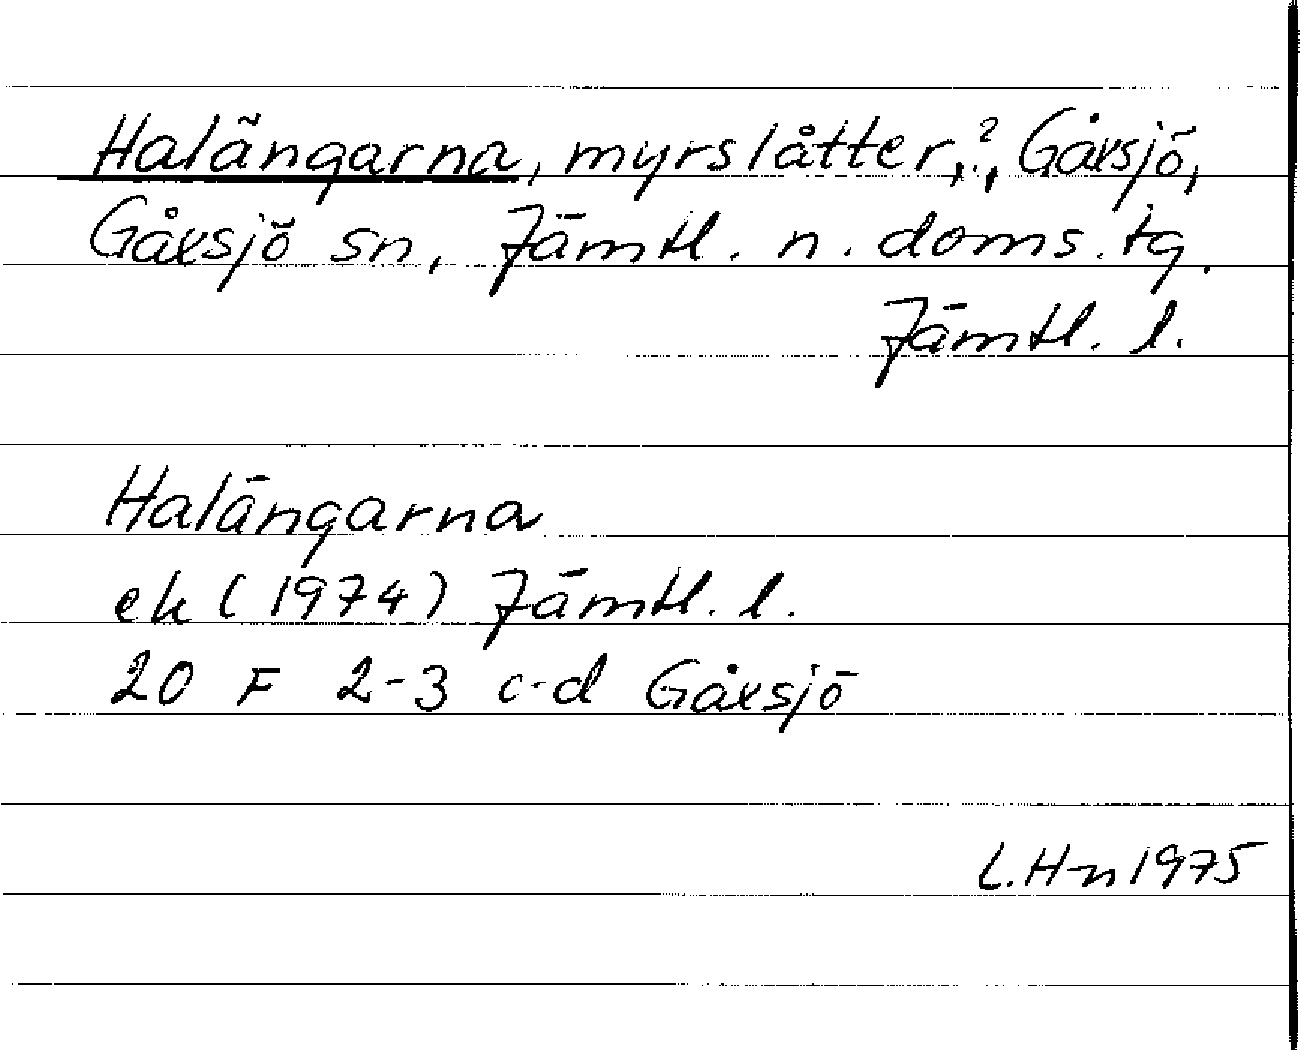 Halängarna, myrslåtter, ?, Gåxsjö,
Gåxsjö sn, Jämtl. n. doms. tg.
Jämtl. l.
Halängarna
ek (1974) Jämtl. l.
20 F 2-3 c-d Gåxsjö
L.Hn 1975